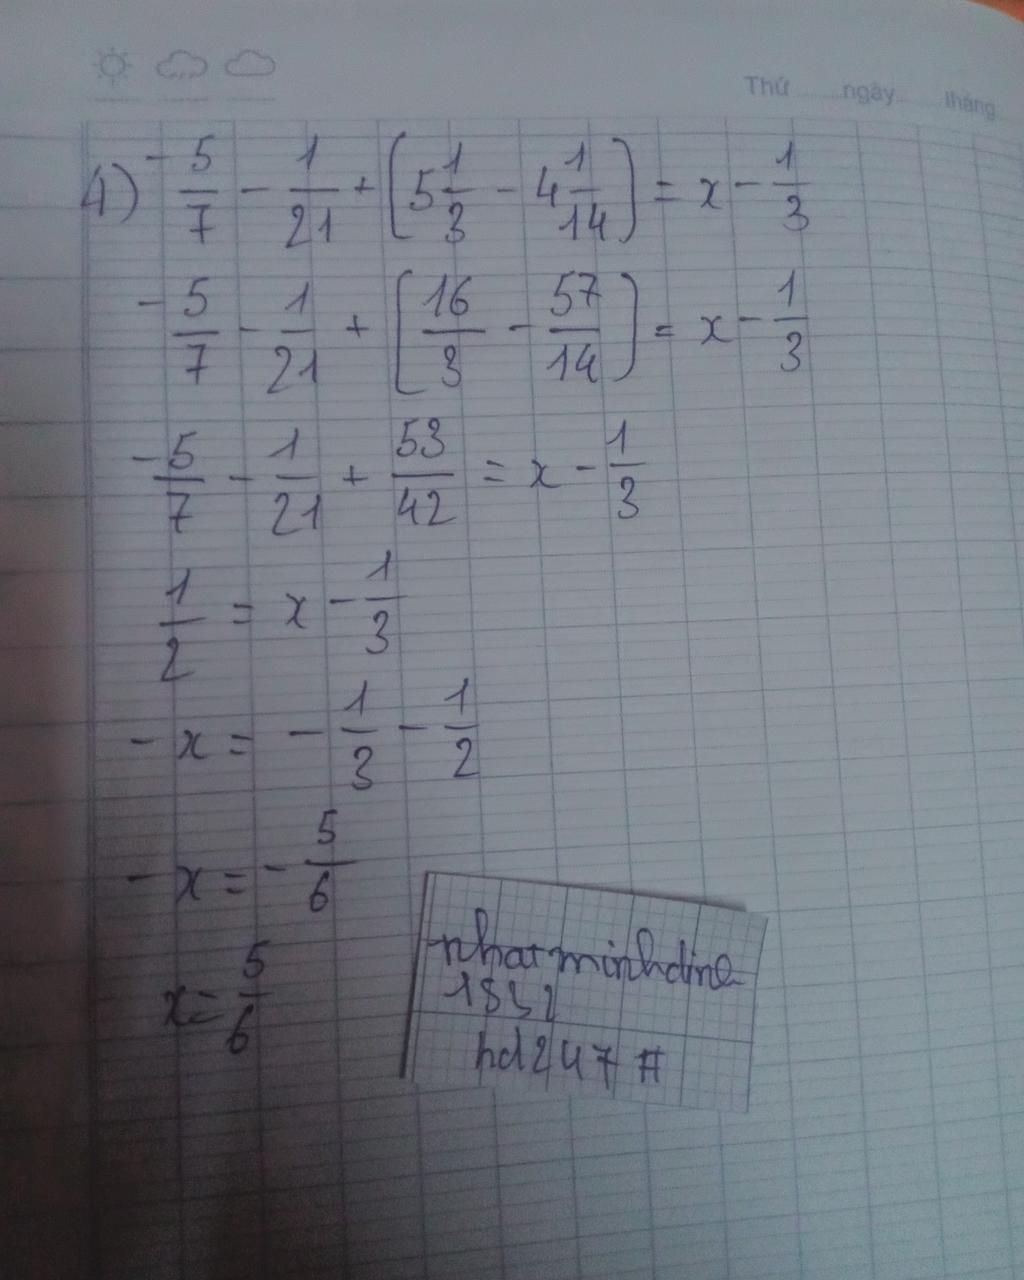 Thứ ngày tháng
4) -5/7 - 1/21 + (5 1/3 - 4 1/14) = x - 1/3
-5/7 - 1/21 + (16/3 - 57/14) = x - 1/3
-5/7 - 1/21 + 53/42 = x - 1/3
1/2 = x - 1/3
-x = -1/3 - 1/2
-x = -5/6
x = 5/6
hd247 #